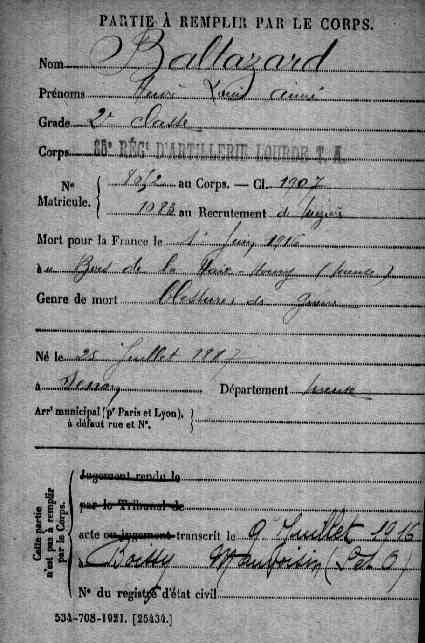 PARTIE À REMPLIR PAR LE CORPS.
Nom Baltazard
Prénoms Henri Louis Aimé
Grade 2e classe
Corps 85e RÉGt D'ARTILLERIE LOURDE T. A.
No 8052 au Corps. — Cl. 1907
Matricule. 1088 au Recrutement de
Mort pour la France le 1er 1916
à Bois de la
Genre de mort blessures de guerre
Né le 25 Juillet 1887
à Département
Arrt municipal (pr Paris et Lyon),
à défaut rue et No.
Cette partie n'est pas à remplir par le Corps.
Jugement rendu le
par le Tribunal de
acte ou jugement transcrit le 9 Juillet 1916
à Boissy Mauvoisin (S et O)
No du registre d'état civil
534-708-1921. [25434.]